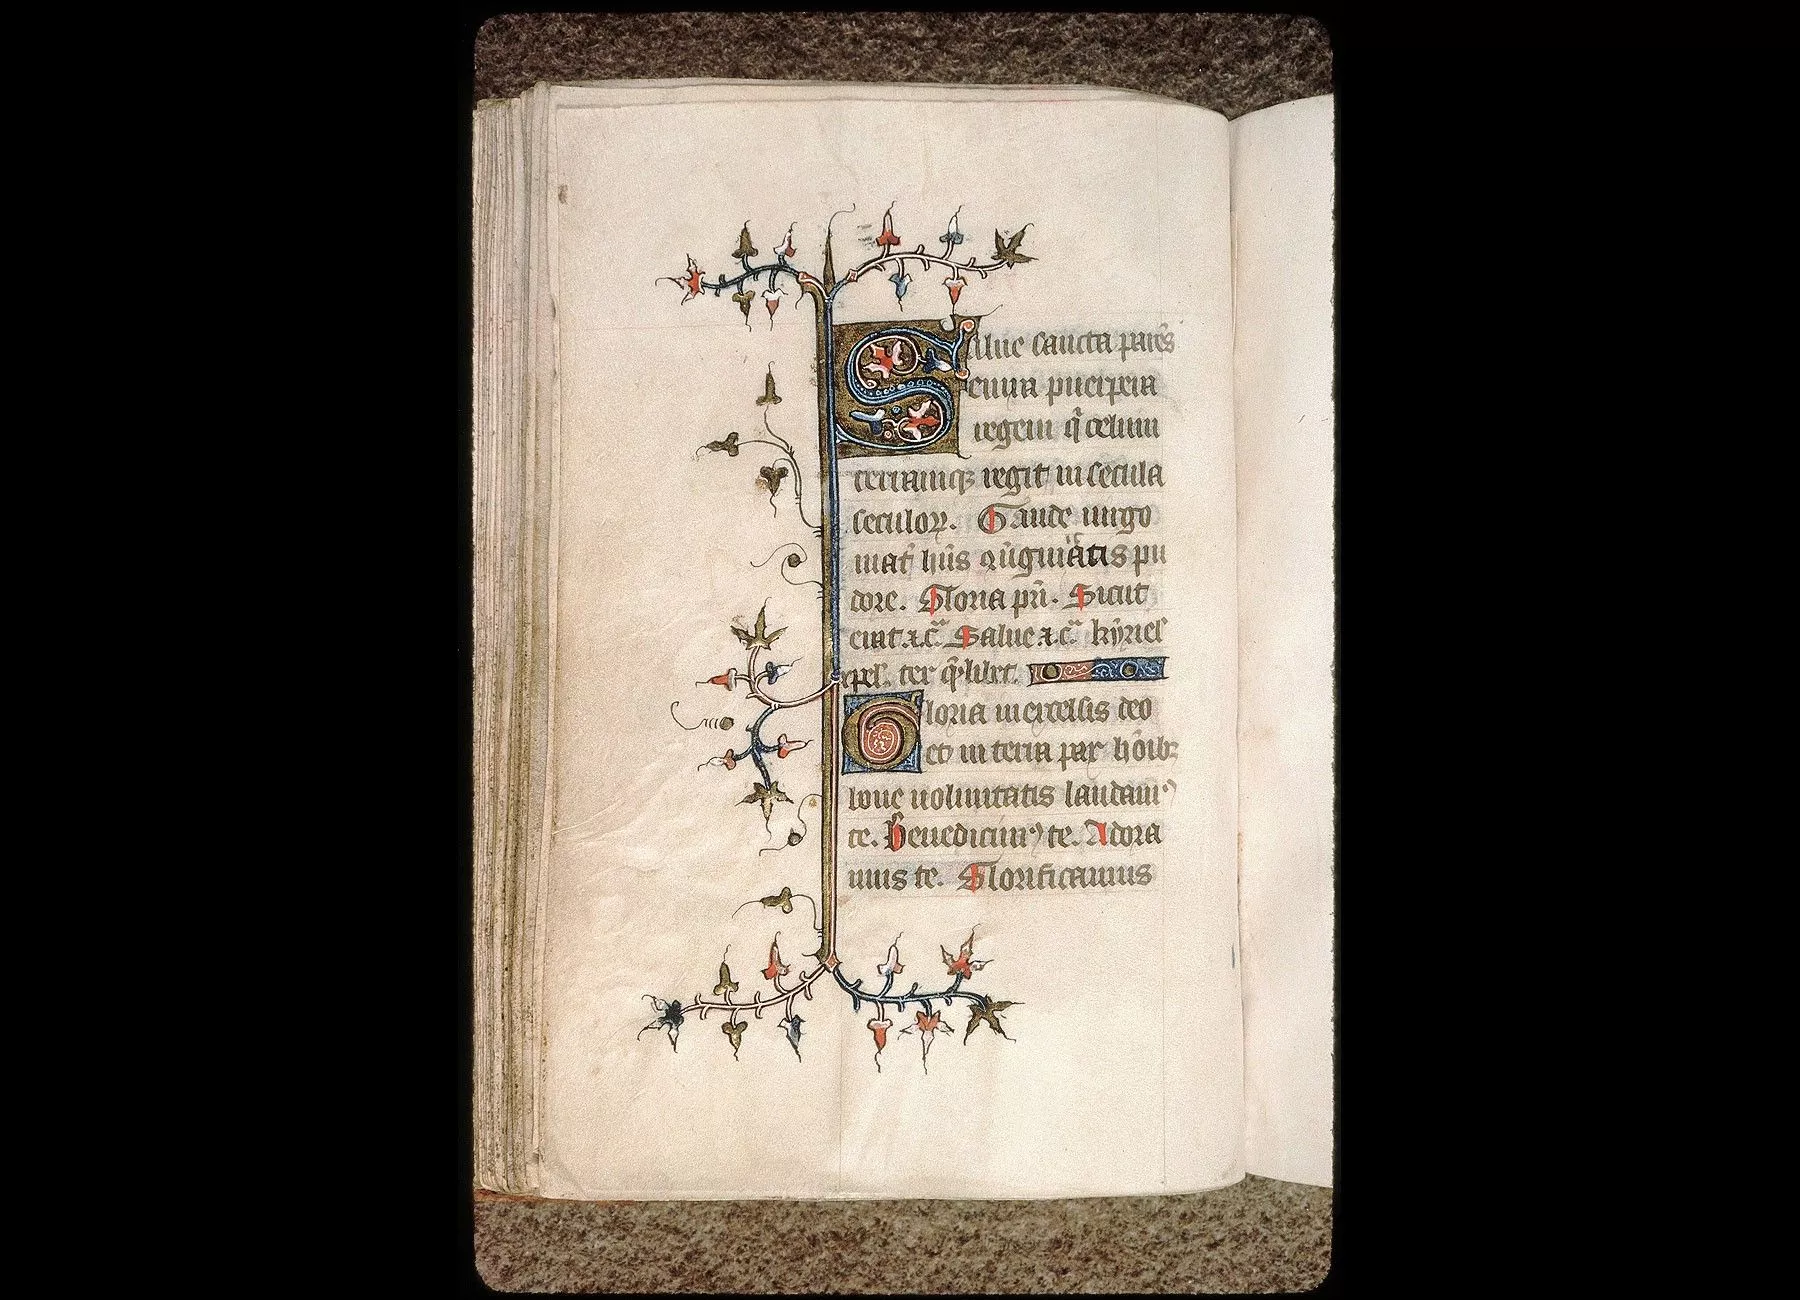 Salue sancta pare͂s
enixa puerpera
regem q̄ celum
terramqꝫ regit in secula
seculoꝝ. Gaude uirgo
mat͛ huīs pu
dore. Gloria pr̄i. Sicut
erat ⁊.c̄. Salue ⁊.c̄. kyriel
xpel. ter q̄libet.
Gloria in excelsis deo
et in terra pax hōibꝫ
bone uoluntatis laudamꝰ
te. Benedicimꝰ te. Adora
mus te. Glorificamus